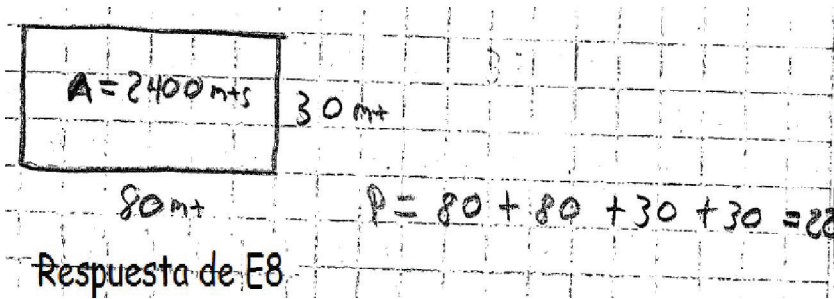 A = 2400 mts
30 mt
80 mt
P = 80 + 80 + 30 + 30 = 22
Respuesta de E8